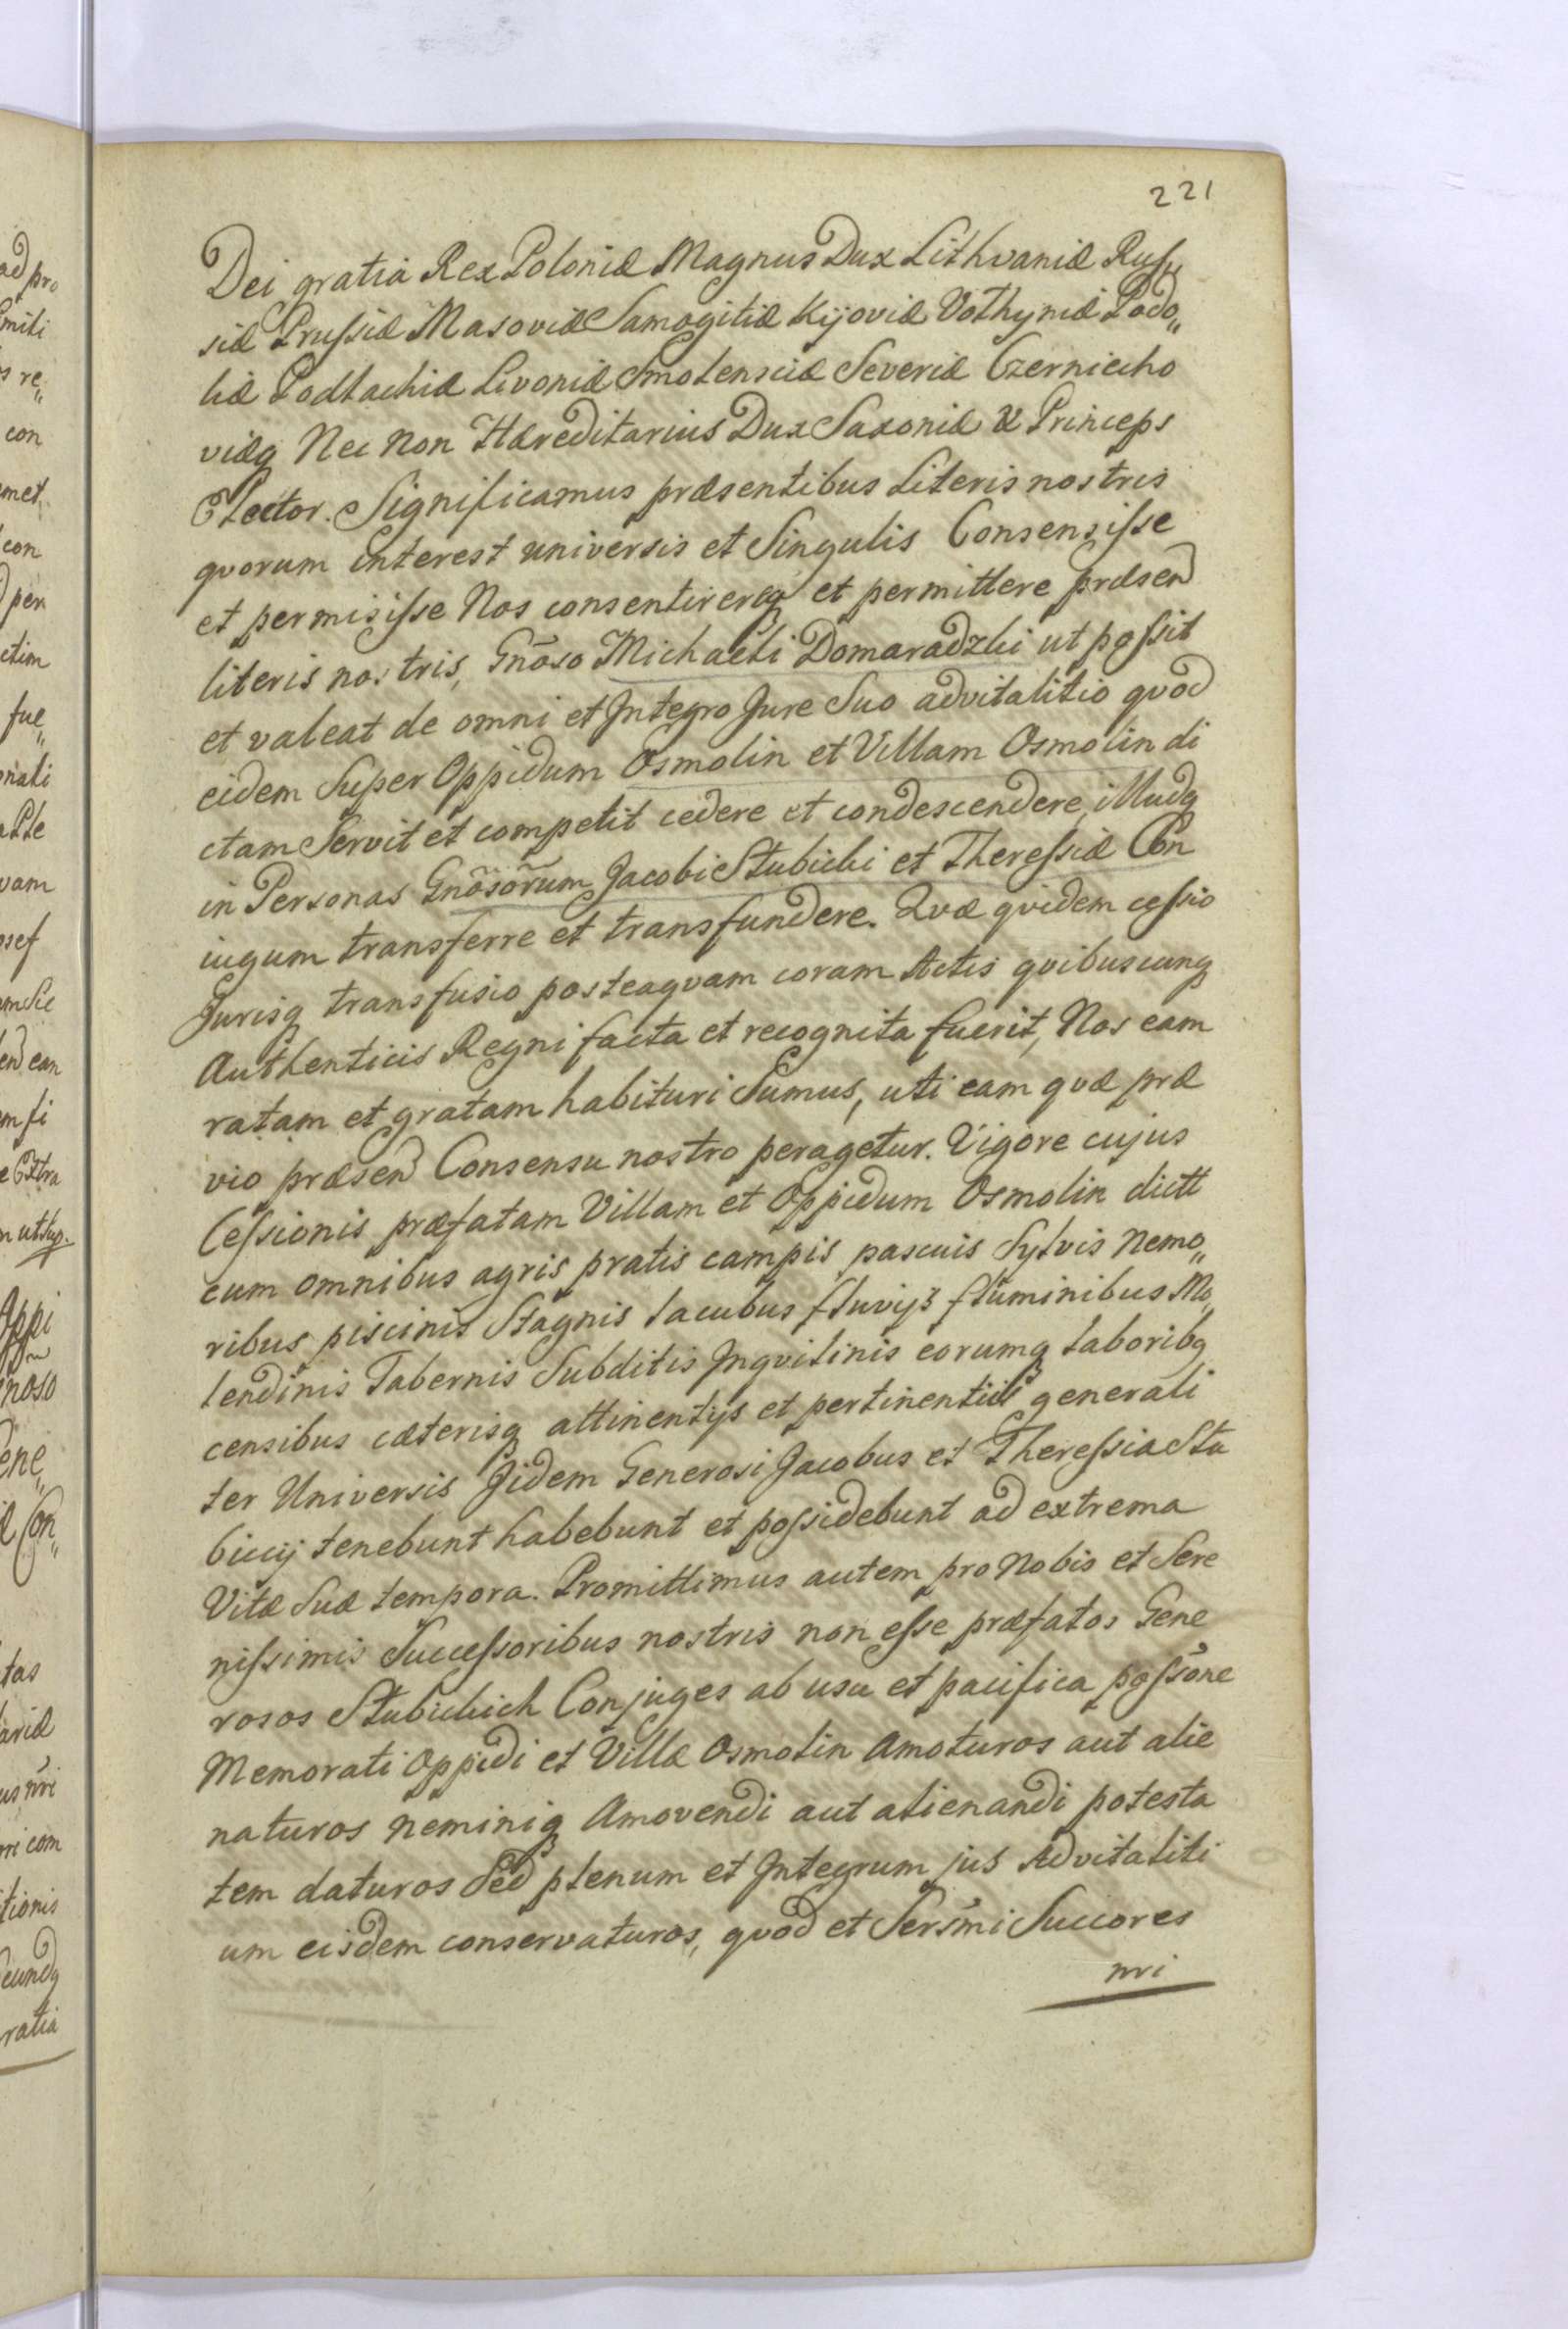 221
Dei gratia Rex Poloniæ Magnus Dux Lithvaniæ Rus„
siæ Prussiæ Masoviæ Samogitiæ Kijoviæ Volhyniæ Podo„
liæ Podlachiæ Livoniæ Smolensciæ Severiæ Czerniecho
viæq Nec Non Hæreditarius Dux Saxoniæ & Princeps
Elector. Significamus præsentibus Literis nostris
qvorum interest universis et Singulis Consensisse
et permisisse Nos consentireq et permittere præsen
literis nostris, Gnõso Michaeli Domaradzki ut possit
et valeat de omni et Integro Jure Suo advitalitio qvod
eidem Super Oppidum Osmolin et Villam Osmolin di
ctam Servit et competit cedere et condescendere, illudq
in Personas Gnõsõrum Jacobi Stubicki et Theressiæ Con
iugum transferre et transfundere. Qvæ qvidem cessio
Jurisq transfusio posteaqvam coram Actis qvibuscunq
Authenticis Regni facta et recognita fuerit, Nos eam
ratam et gratam habituri Sumus, uti eam qvæ præ
vio præsen Consensu nostro peragetur. Vigore cujus
Cessionis præfatam Villam et Oppidum Osmolin dictt
cum omnibus agris pratis campis pascuis Sylvis Nemo„
ribus piscinis Stagnis lacubus fluvijs fluminibus Mo„
lendinis Tabernis Subditis Inqvilinis eorumq laboribq
censibus cæterisq attinentijs et pertinentiis generali
ter Universis Jidem Generosi Jacobus et Theressia Stu
biccij tenebunt habebunt et possidebunt ad extrema
Vitæ Suæ tempora. Promittimus autem pro Nobis et Sere
nissimis Successoribus nostris non esse præfatos Gene
rosos Stubickich Conjuges ab usu et pacifica possõne
Memorati Oppidi et Villæ Osmolin Amoturos aut alie
naturos neminiq Amovendi aut alienandi potesta
tem daturos Sed plenum et Integrum jus Advitaliti
um eisdem conservaturos, qvod et Sersmi Succores
nri